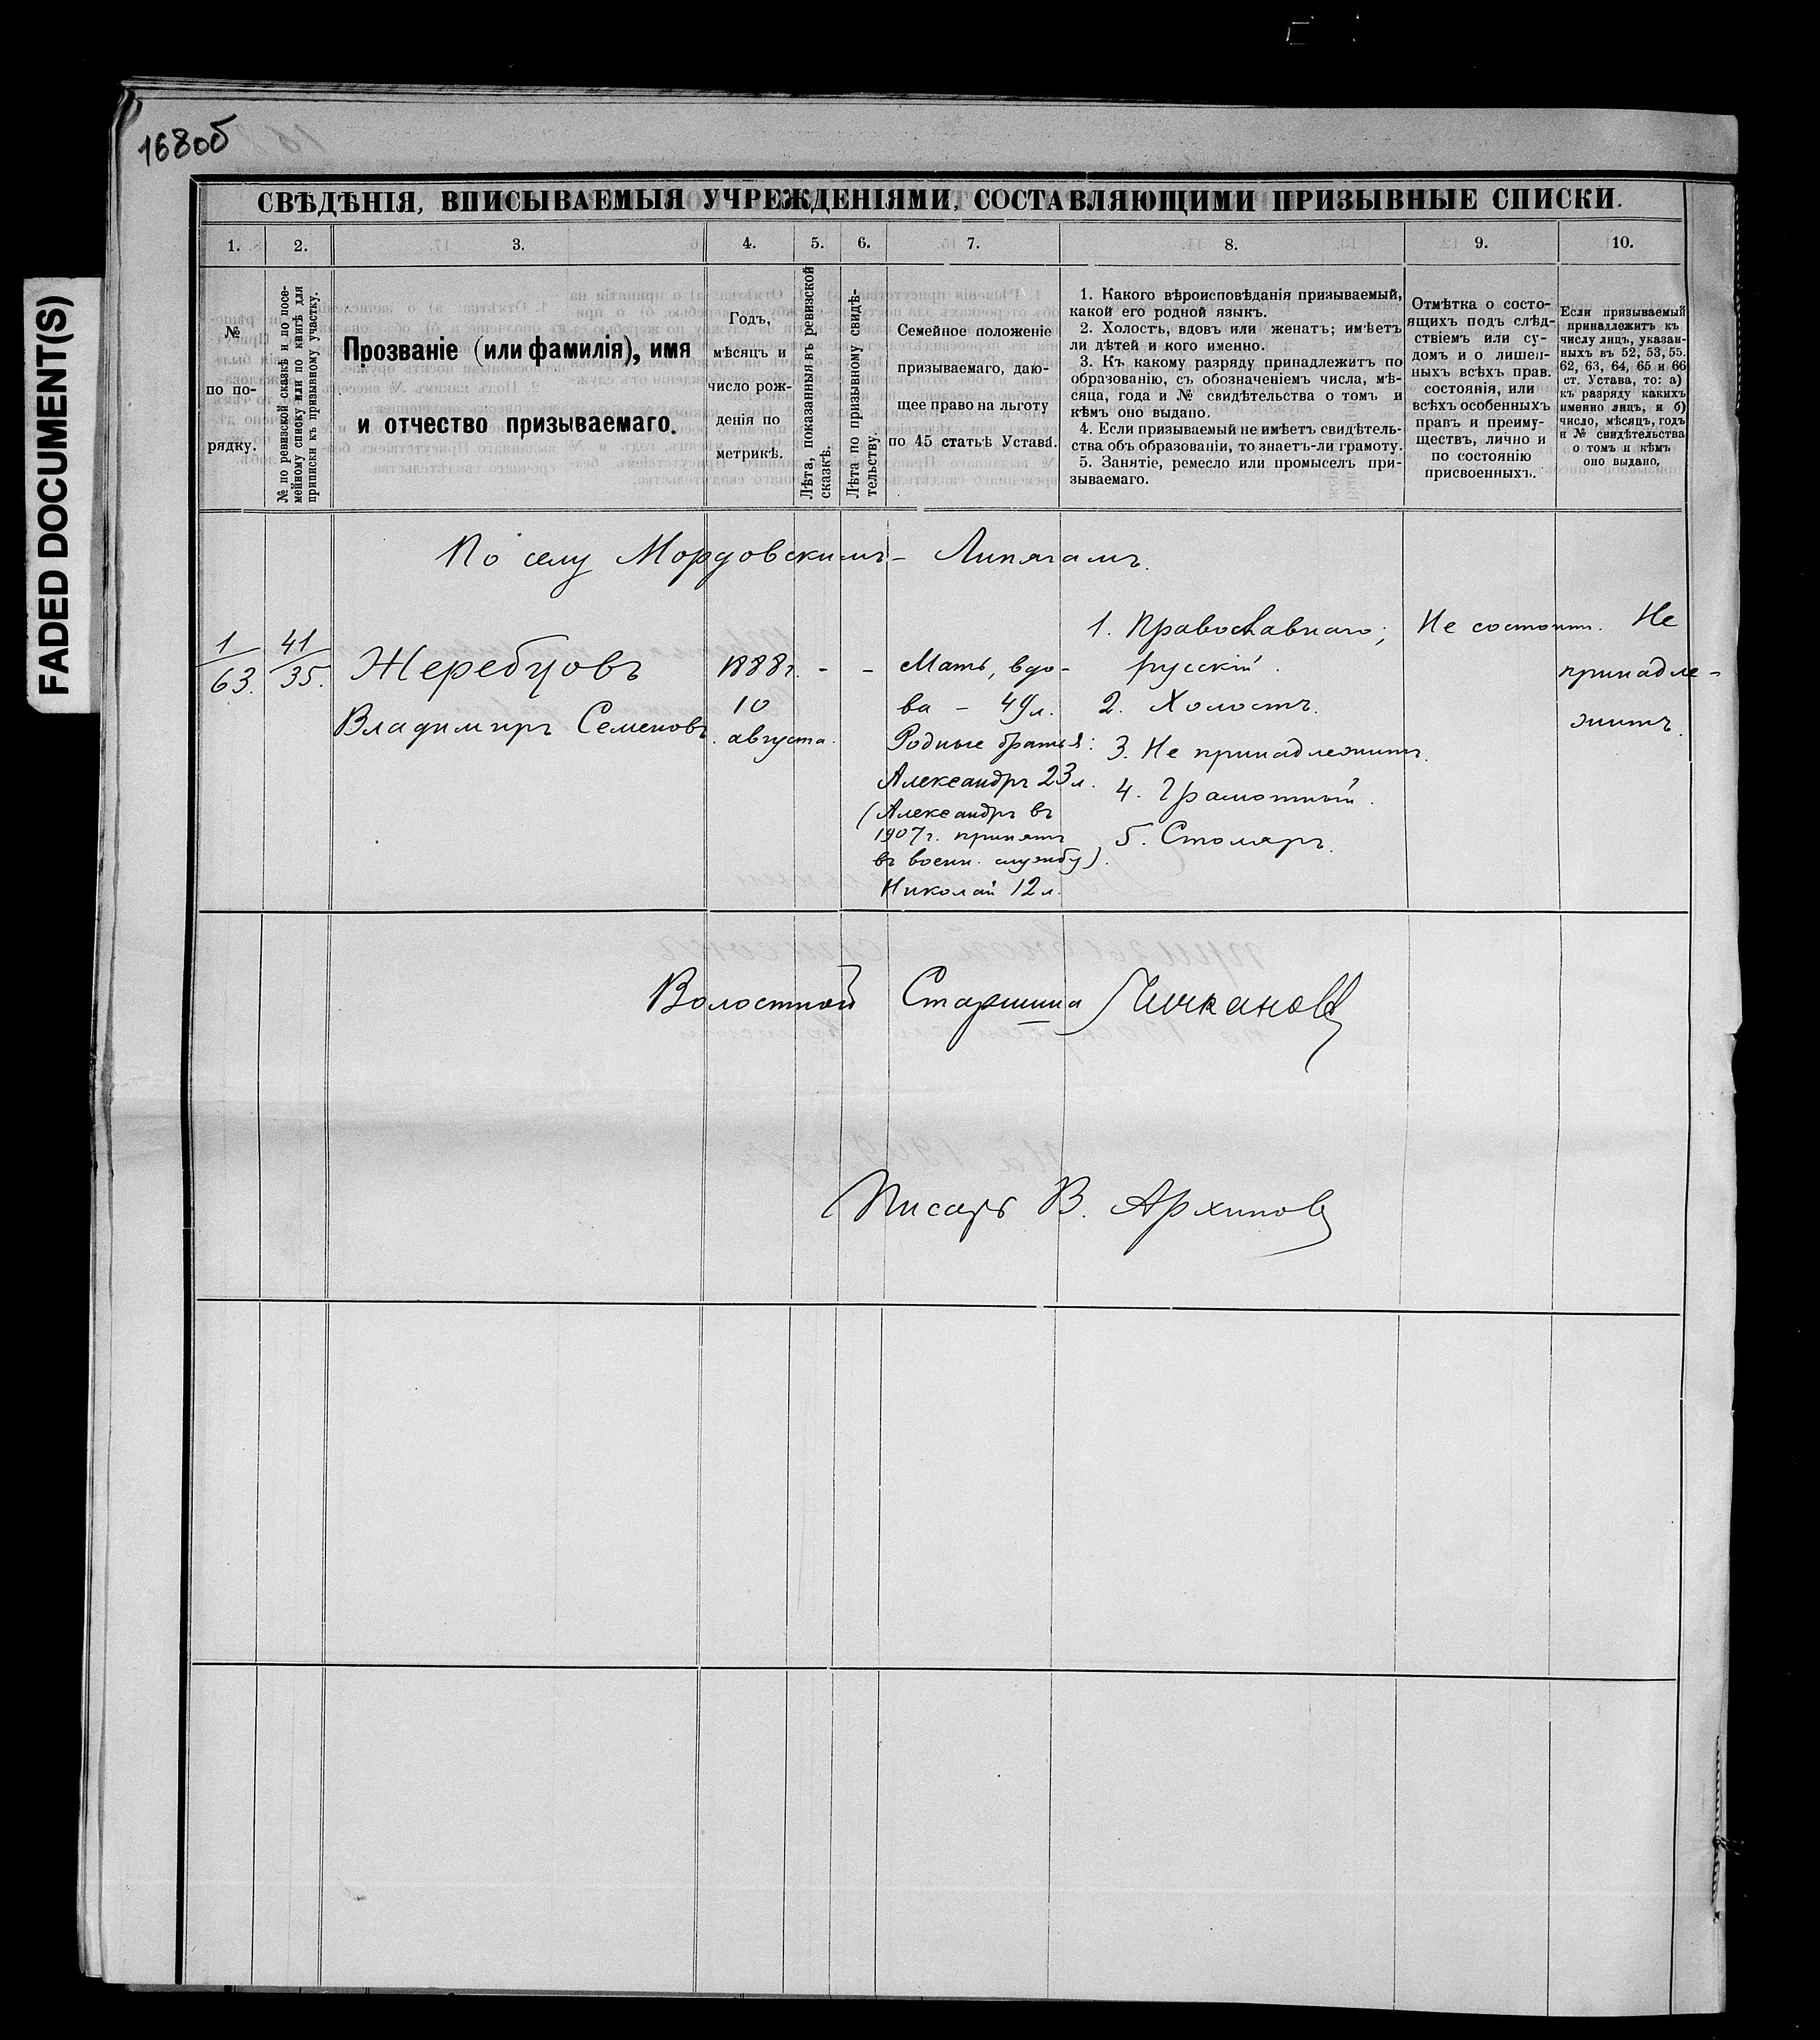 168об
FADED DOCUMENT(S)
СВѢДѢНІЯ, ВПИСЫВАЕМЫЯ УЧРЕЖДЕНІЯМИ, СОСТАВЛЯЮЩИМИ ПРИЗЫВНЫЕ СПИСКИ.
1. 2. 3. 4. 5. 6. 7. 8. 9. 10.
№
по по-
рядку.
№ по ревизской сказкѣ и по посе-
мейному списку или по книгѣ для
приписки къ призывному участку.
Прозваніе (или фамилія), имя
и отчество призываемаго.
Годъ,
мѣсяцъ и
число рож-
денія по
метрикѣ.
Лѣта, показанныя въ ревизской
сказкѣ.
Лѣта по призывному свидѣ-
тельству.
Семейное положеніе
призываемаго, даю-
щее право на льготу
по 45 статьѣ Устава.
1. Какого вѣроисповѣданія призываемый,
какой его родной языкъ.
2. Холостъ, вдовъ или женатъ; имѣетъ
ли дѣтей и кого именно.
3. Къ какому разряду принадлежитъ по
образованію, съ обозначеніемъ числа, мѣ-
сяца, года и № свидѣтельства о томъ и
кѣмъ оно выдано.
4. Если призываемый не имѣетъ свидѣтель-
ства объ образованіи, то знаетъ-ли грамоту.
5. Занятіе, ремесло или промыселъ при-
зываемаго.
Отмѣтка о состо-
ящихъ подъ слѣд-
ствіемъ или су-
домъ и о лишен-
ныхъ всѣхъ прав.
состоянія, или
всѣхъ особенныхъ
правъ и преиму-
ществъ, лично и
по состоянію
присвоенныхъ.
Если призываемый
принадлежитъ къ
числу лицъ, указан-
ныхъ въ 52, 53, 55.
62, 63, 64, 65 и 66
ст. Устава, то: а)
къ разряду какихъ
именно лицъ, и б)
число, мѣсяцъ, годъ
и № свидѣтельства
о томъ и кѣмъ
оно выдано,
По селу Мордовскимъ- Липягамъ.
1/63.
41/35.
Жеребцовъ
Владимиръ Семеновъ.
1888г.
10
августа.
-
-
Мать, вдо-
ва - 49л.
Родные братья:
Александръ 23л.
(Александръ въ
1907г. принятъ
въ воен. службу).
Николай 12л.
1. Православнаго;
русскій.
2. Холостъ.
3. Не принадлежитъ.
4. Грамотный.
5. Столяръ.
Не состоитъ.
Не
принадле-
житъ.
Волостной Старшина Чичкановъ
Писарь В. Архиповъ